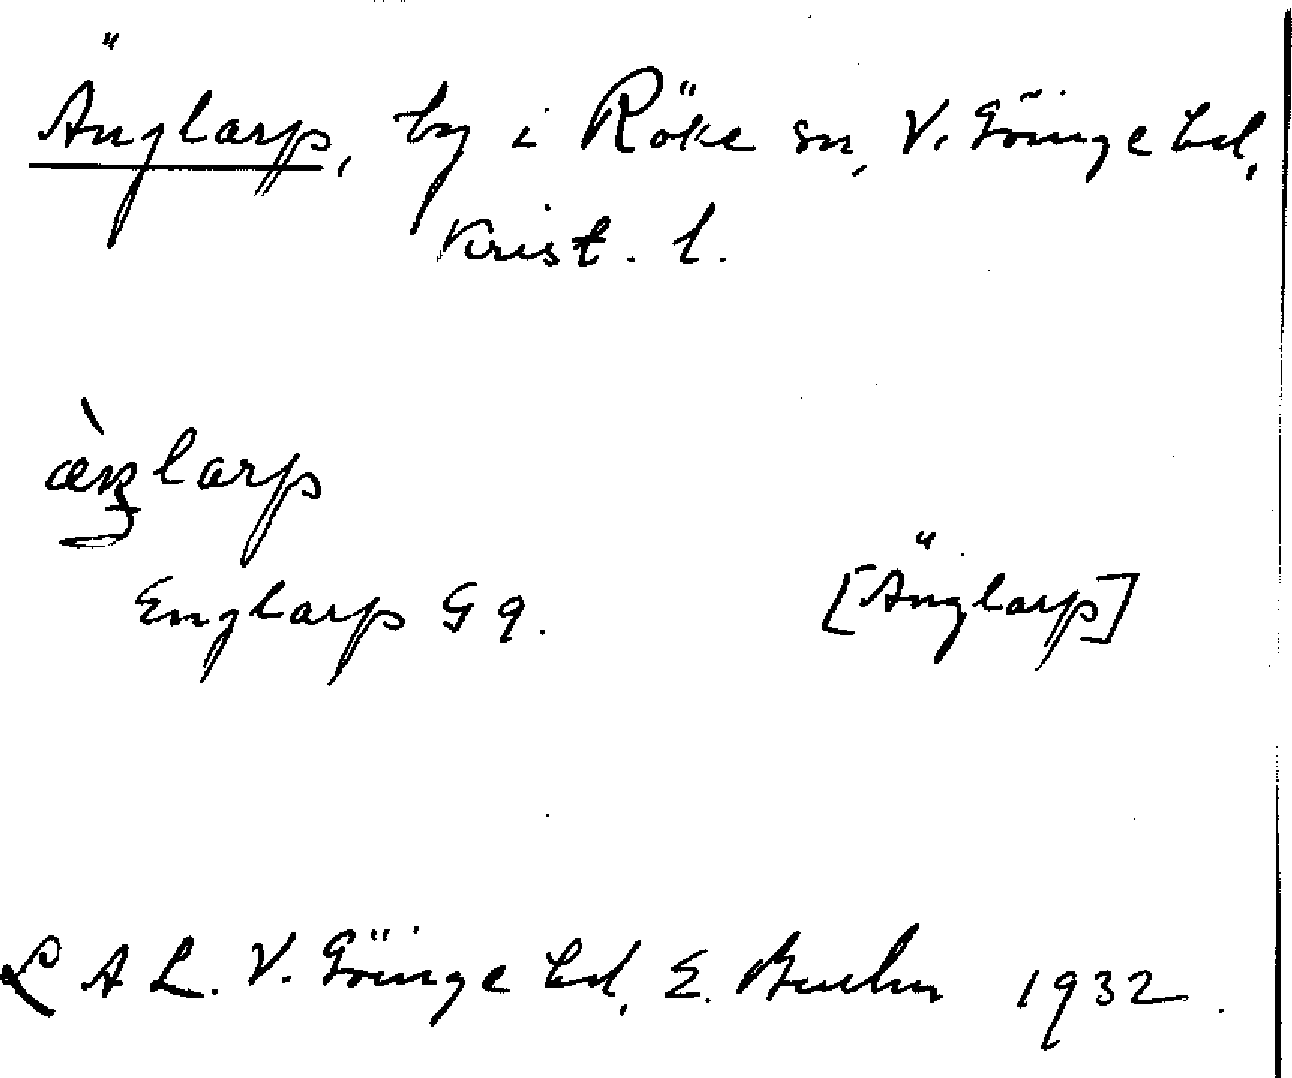 Änglarp, by i Röke sn, V. Göinge hd,
Krist. l.
æ̀ŋlarp
Englarp G 9. [Änglarp]
L A L. V. Göinge hd, E. 1932.